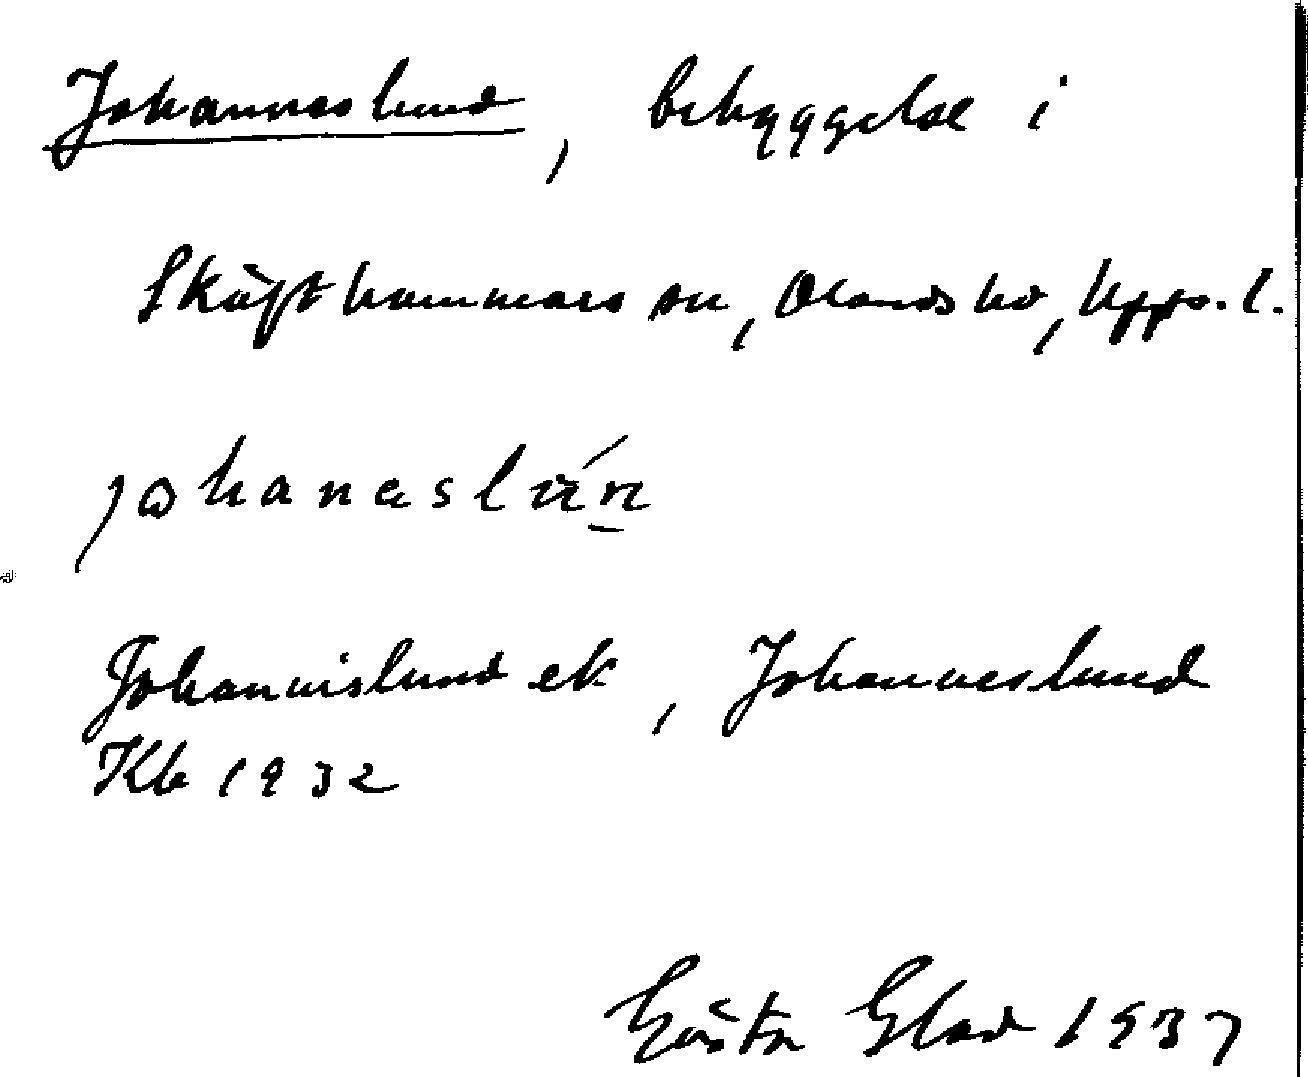 Johanneslund, bebyggelse i
Skäfthammars sn, Olands hd, Upps. l.
johaneslún
Johannislund ek, Johanneslund
Kb 1932
Gösta Glad 1937